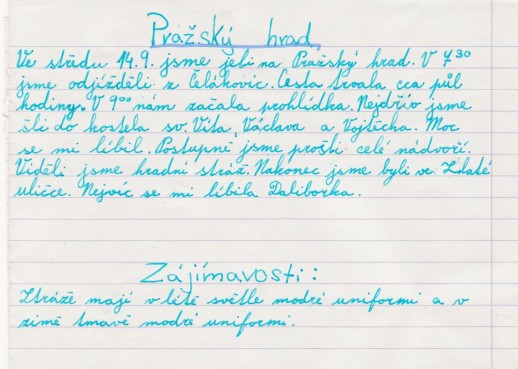 Pražský hrad
Ve středu 14.9. jsme jeli na Pražský hrad. V 7³⁰
jsme odjížděli z Čelákovic. Cesta trvala cca půl
hodiny. V 9⁰⁰ nám začala prohlídka. Nejdřív jsme
šli do kostela sv. Víta, Václava a Vojtěcha. Moc
se mi líbil. Postupně jsme prošli celé nádvoří.
Viděli jsme hradní stráž. Nakonec jsme byli ve Zlaté
uličce. Nejvíc se mi líbila Daliborka.
Zájímavosti:
Stráže mají v létě světle modré uniformi a v
zimě tmavě modré uniformi.